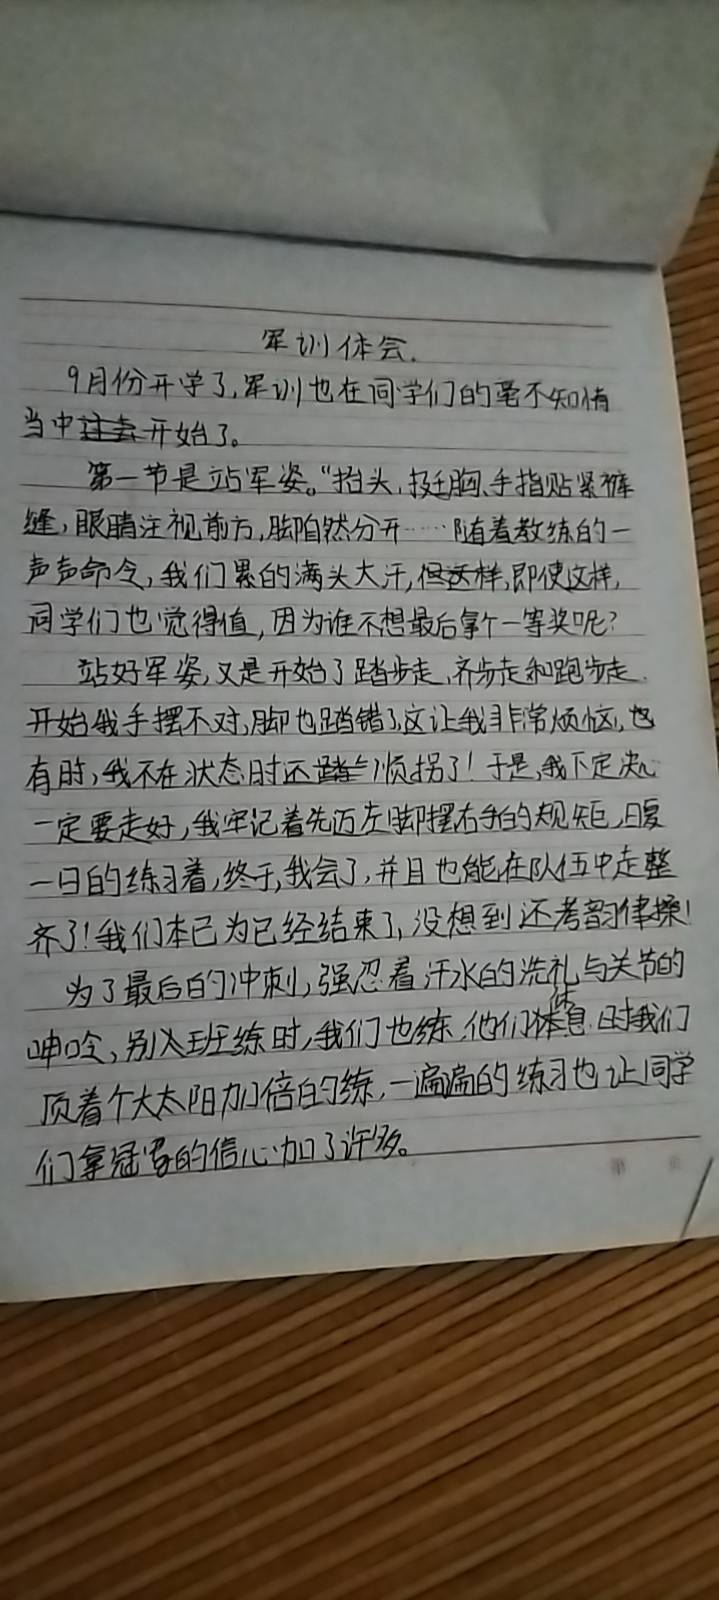 军训体会.
9月份开学了,军训也在同学们的毫不知情
当中开始了。
第一节是站军姿。“抬头,挺胸、手指贴紧裤
缝,眼睛注视前方,脚自然分开……随着教练的一
声声命令,我们累的满头大汗,即使这样,
同学们也觉得值,因为谁不想最后拿个一等奖呢?
站好军姿,又是开始了踏步走,齐步走和跑步走.
开始我手摆不对,脚也踏错了,这让我非常烦恼,也
有时,我不在状态时还顺拐了!于是,我下定决心
一定要走好,我牢记着先迈左脚摆右手的规矩,日复
一日的练习着,终于,我会了,并且也能在队伍中走整
齐了!我们本已为已经结束了,没想到还考韵律操!
为了最后的冲刺,强忍着汗水的洗礼与关节的
呻吟,别人班练时,我们也练,他们休息时我们
顶着个大太阳加倍的练,一遍遍的练习也让同学
们拿冠军的信心加了许多。
第 页